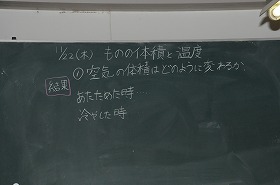 11/22(木) ものの体積と温度
① 空気の体積はどのように変わるか
結果
あたためた時…
冷やした時